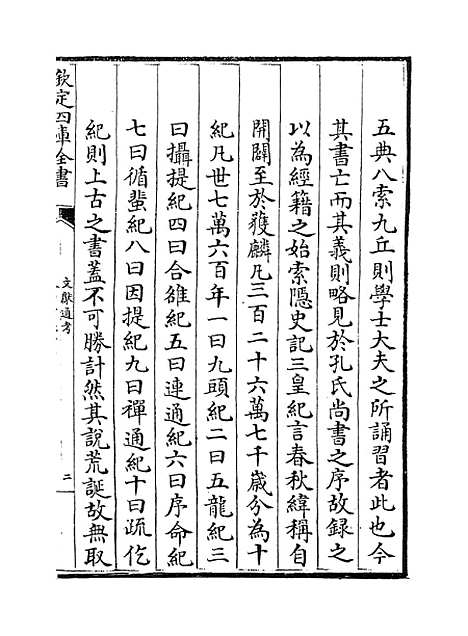 五典八索九丘則學士大夫之所誦習者此也今
其書亡而其義則略見於孔氏尚書之序故録之
以為經籍之始索隱史記三皇紀言春秋緯稱自
開闢至於獲麟凡三百二十六萬七千歲分為十
紀凡世七萬六百年一曰九頭紀二曰五龍紀三
曰攝提紀四曰合雒紀五曰連通紀六曰序命紀
七曰循蜚紀八曰因提紀九曰禪通紀十曰疏仡
紀則上古之書蓋不可勝計然其說荒誕故無取
欽定四庫全書
文獻通考
二